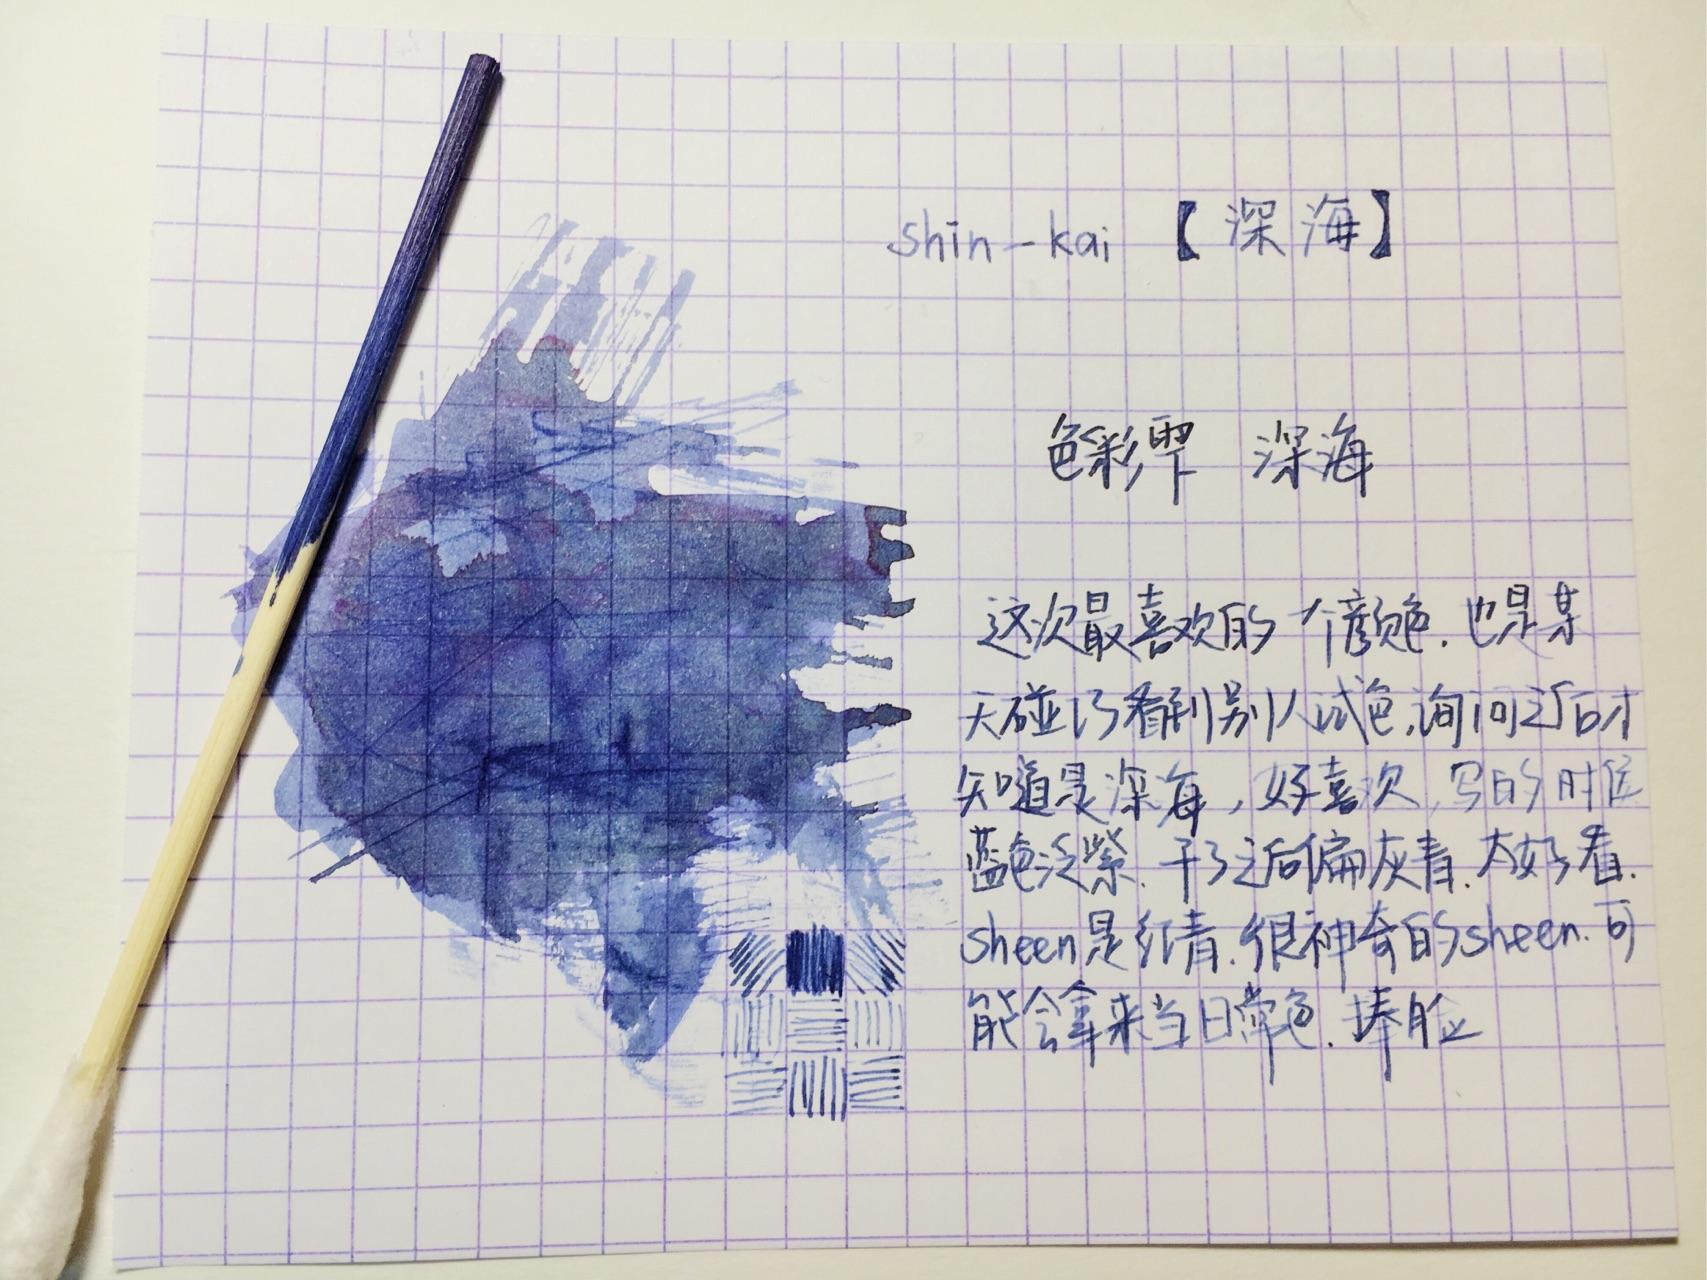 shin-kai 【深海】
色彩雫 深海
这次最喜欢的一个颜色.也是某
天碰巧看到别人试色,询问之后才
知道是深海,好喜欢,写的时候
蓝色泛紫.干了之后偏灰青.太好看.
sheen是红青.很神奇的sheen.可
能会拿来当日常色.捧脸